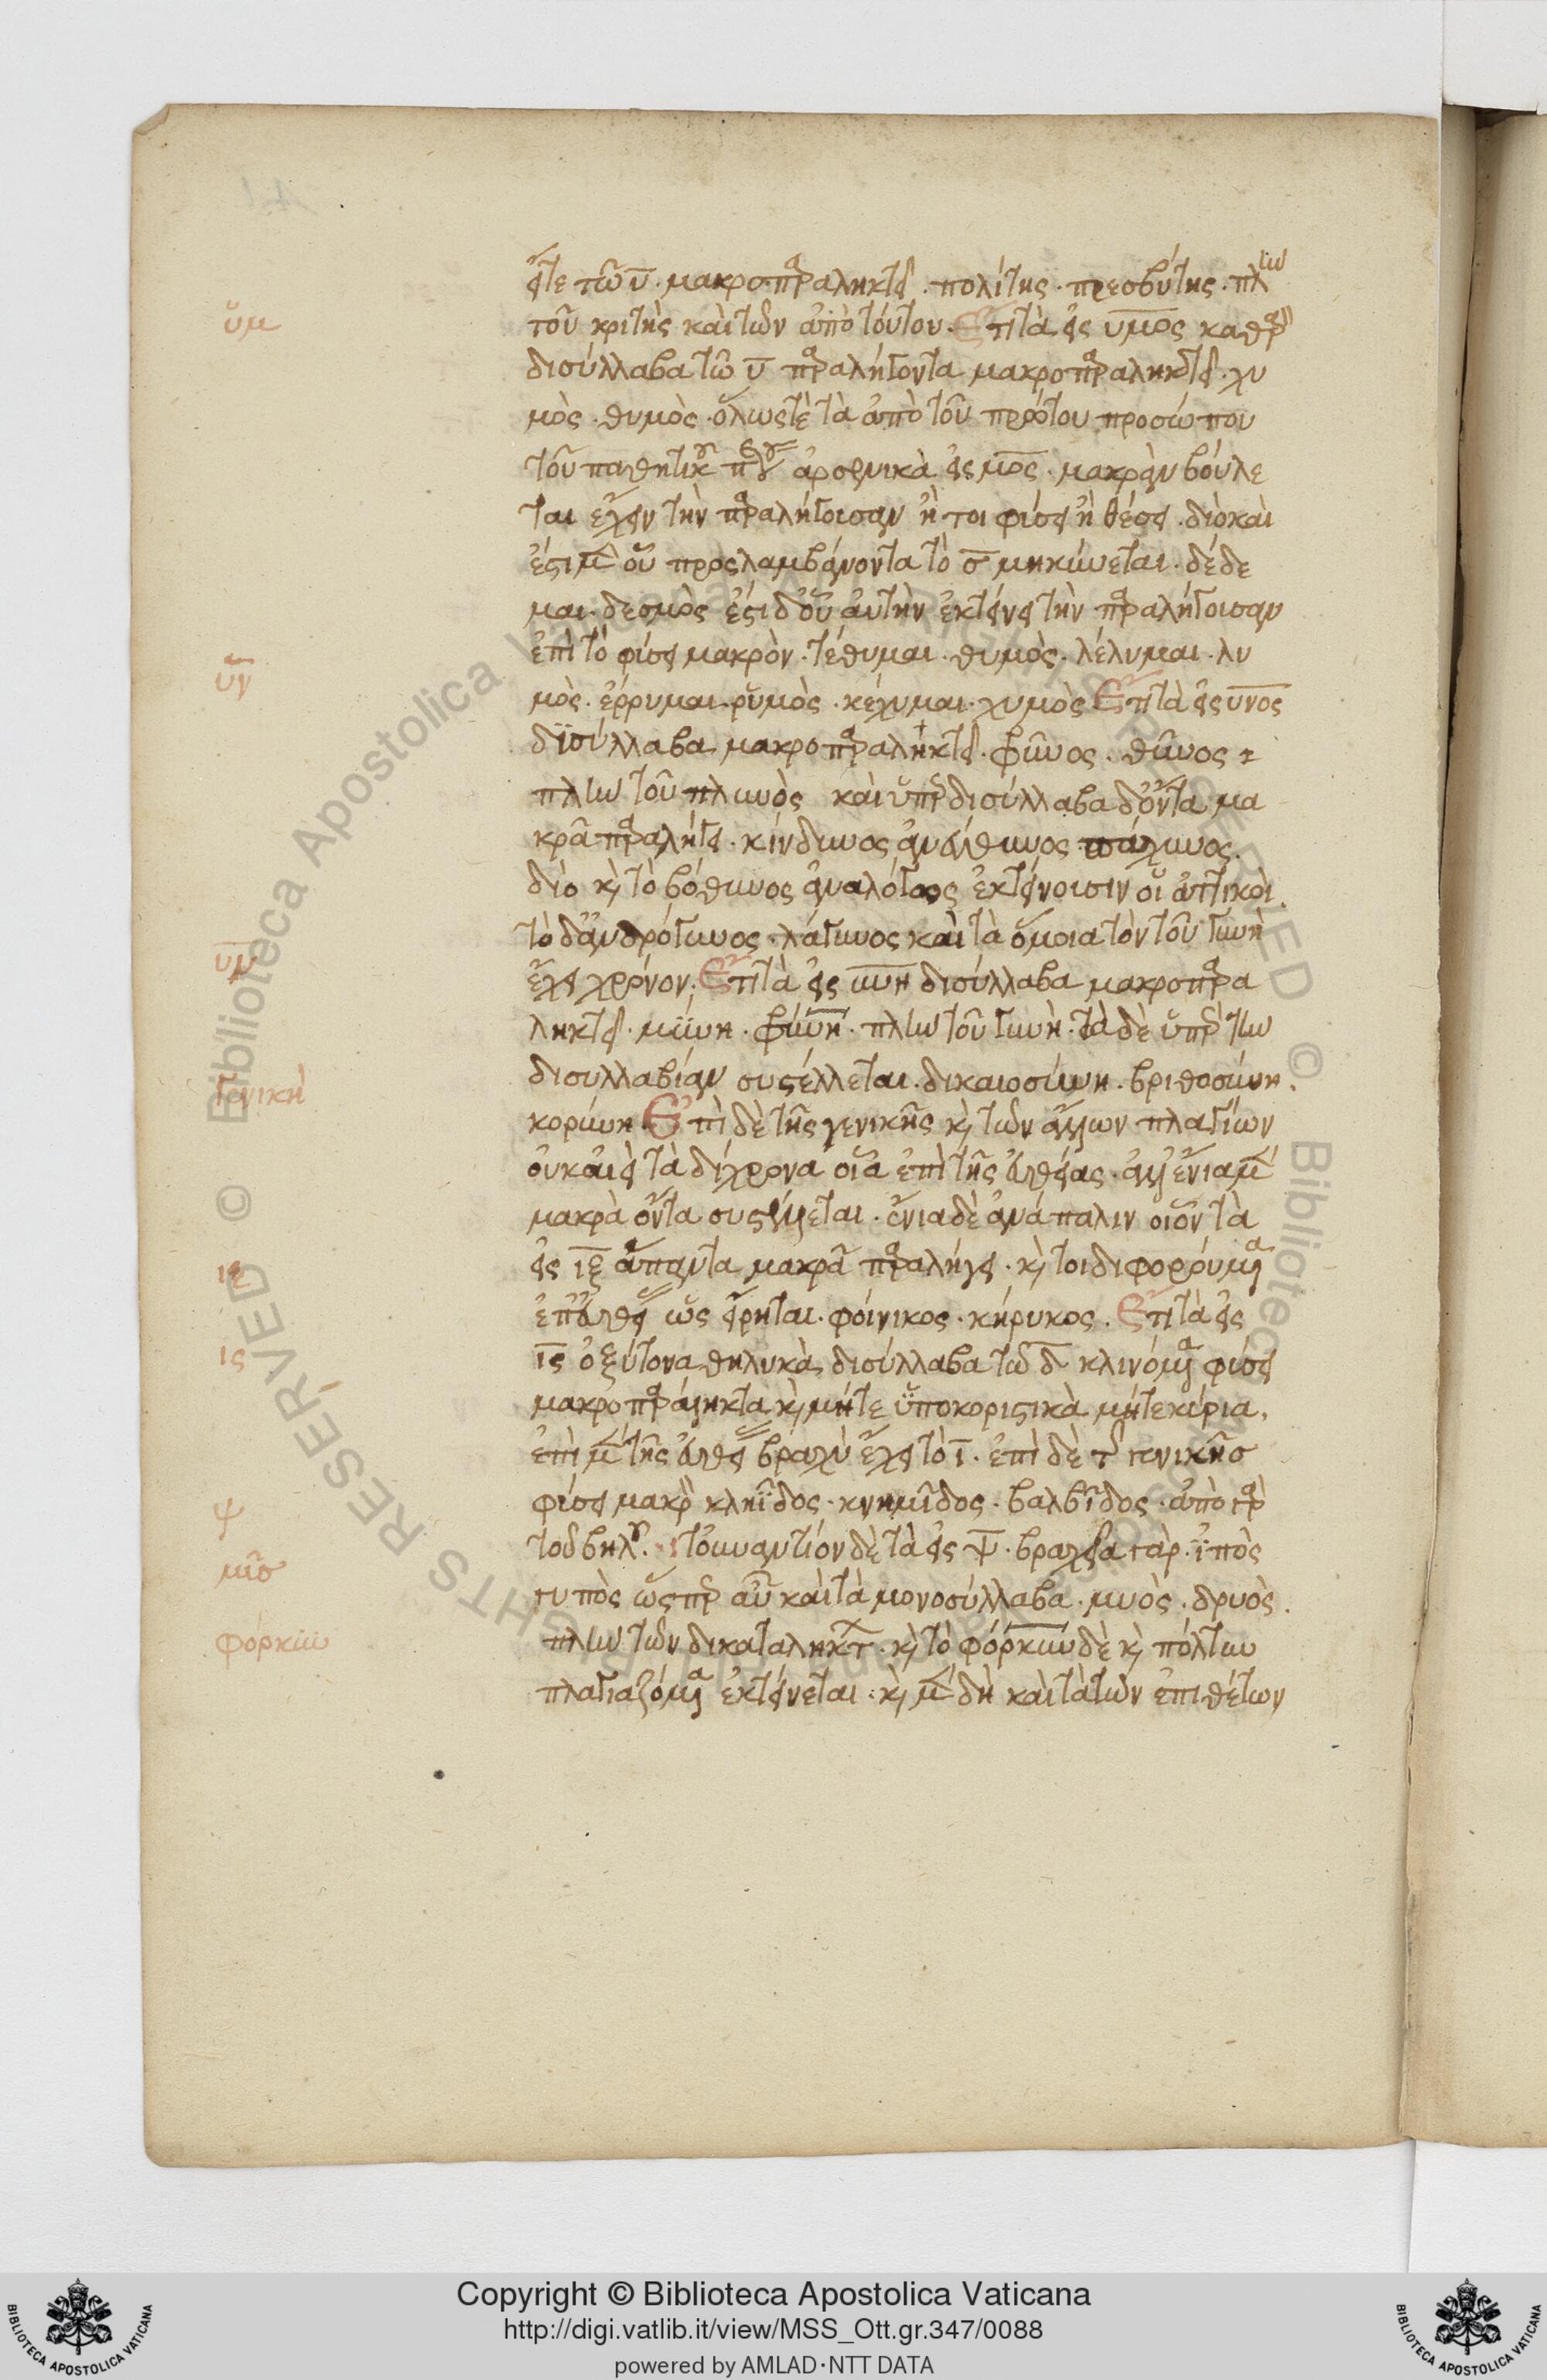 εἴτε τῶ υ · μακροπαραληκτεῖ · πολίτης · πρεσβύτης · πλὴν
ὑμ
τοῦ κριτὴς καὶ τῶν ἀπὸ τούτου. Ἔτι τὰ εἰς υμος καθαρὸν
δισύλλαβα τῶ υ παραλήγοντα μακροπαραληκτεῖ · χυ
μὸς · θυμὸς · ὅλως τὲ τὰ ἀπὸ τοῦ πρώτου προσώπου
τοῦ παθητικοῦ ἀρσενικὰ εἰς μος · μακρὰν βούλε
ται ἔχειν τὴν παραλήγουσαν ἤτοι φύσει ἢ θέσει · διὸ καὶ
ἔστι μὲν οὗ προσλαμβάνοντα τὸ σ μηκύνεται · δέδε
μαι · δεσμὸς ἔστι δ' οὗ αὐτὴν ἐκτείνει τὴν παραλήγουσαν
ἐπὶ τὸ φύσει μακρὸν · τέθυμαι · θυμὸς · λέλυμαι · λυ
υν
μὸς · ἔρρυμαι · ῥυμὸς · κέχυμαι · χυμὸς Ἔτι τὰ εἰς υνος
δισύλλαβα μακροπαραληκτεῖ · φῦνος · θῦνος
πλὴν τοῦ πλυνὸς καὶ ὑπὲρ δισύλλαβα δ' ὄντα μα
κρᾶ παραλήγει · κίνδυνος ἀνεύθυνος πάχυνος.
διὸ καὶ τὸ βόθυνος ἀναλόγως ἐκτείνουσιν οἱ ἀττικοὶ.
τὸ δ' ἀνδρόγυνος · λάγυνος καὶ τὰ ὅμοια τὸν τοῦ γυνὴ
υν
ἔχει χρόνον. Ἔτι τὰ εἰς υνη δισύλλαβα μακροπαρα
ληκτεῖ · μύνη · φύνη · πλὴν τοῦ γυνὴ · τὰ δὲ ὑπὲρ τὴν
δισυλλαβίαν συστέλλεται · δικαιοσύνη · βριθοσύνη.
γενικὴ
κορύνη Ἐπὶ δὲ τῆς γενικῆς καὶ τῶν ἄλλων πλαγίων
οὐκ ἀεὶ τὰ δίχρονα οἷα ἐπὶ τῆς εὐθείας · ἀλλ' ἔνια μὲν
μακρὰ ὄντα συστέλλεται · ἔνια δὲ ἀνάπαλιν οἷον τὰ
ιξ
εἰς ιξ ἅπαντα μακρᾶ παραλήγει · καίτοι διφορούμενα
ἐπ' εὐθείας ὡς εἴρηται · φοίνικος · κήρυκος. Ἔτι τὰ εἰς
ις
ις ὀξύτονα θηλυκὰ δισύλλαβα τῶ δ κλινόμενα φύσει
μακροπαράληκτα καὶ μήτε ὑποκοριστικὰ μήτε κύρια.
ἐπὶ μὲν τῆς εὐθείας βραχὺ ἔχει τὸ ι · ἐπὶ δὲ τῆς γενικῆς
φύσει μακρὸν κληῖδος · κνημῖδος · βαλβῖδος · ἀπὸ παρὰ
ψ
τὸ βηλοῦ. τοὐναντίον δὲ τὰ εἰς ψ · βραχέα γὰρ · ἰπὸς
μῦσ
γυπὸς ὥσπερ αὖ καὶ τὰ μονοσύλλαβα · μυὸς · δρυὸς.
φορκὺν
πλὴν τῶν δικαταλήκτων · καὶ τὸ φόρκυν δὲ καὶ πόλτυν
πλαγιαζόμενα ἐκτείνεται · καὶ μὲν δὴ καὶ τὰ τῶν ἐπιθέτων
Copyright © Biblioteca Apostolica Vaticana
http://digi.vatlib.it/view/MSS_Ott.gr.347/0088
powered by AMLAD·NTT DATA